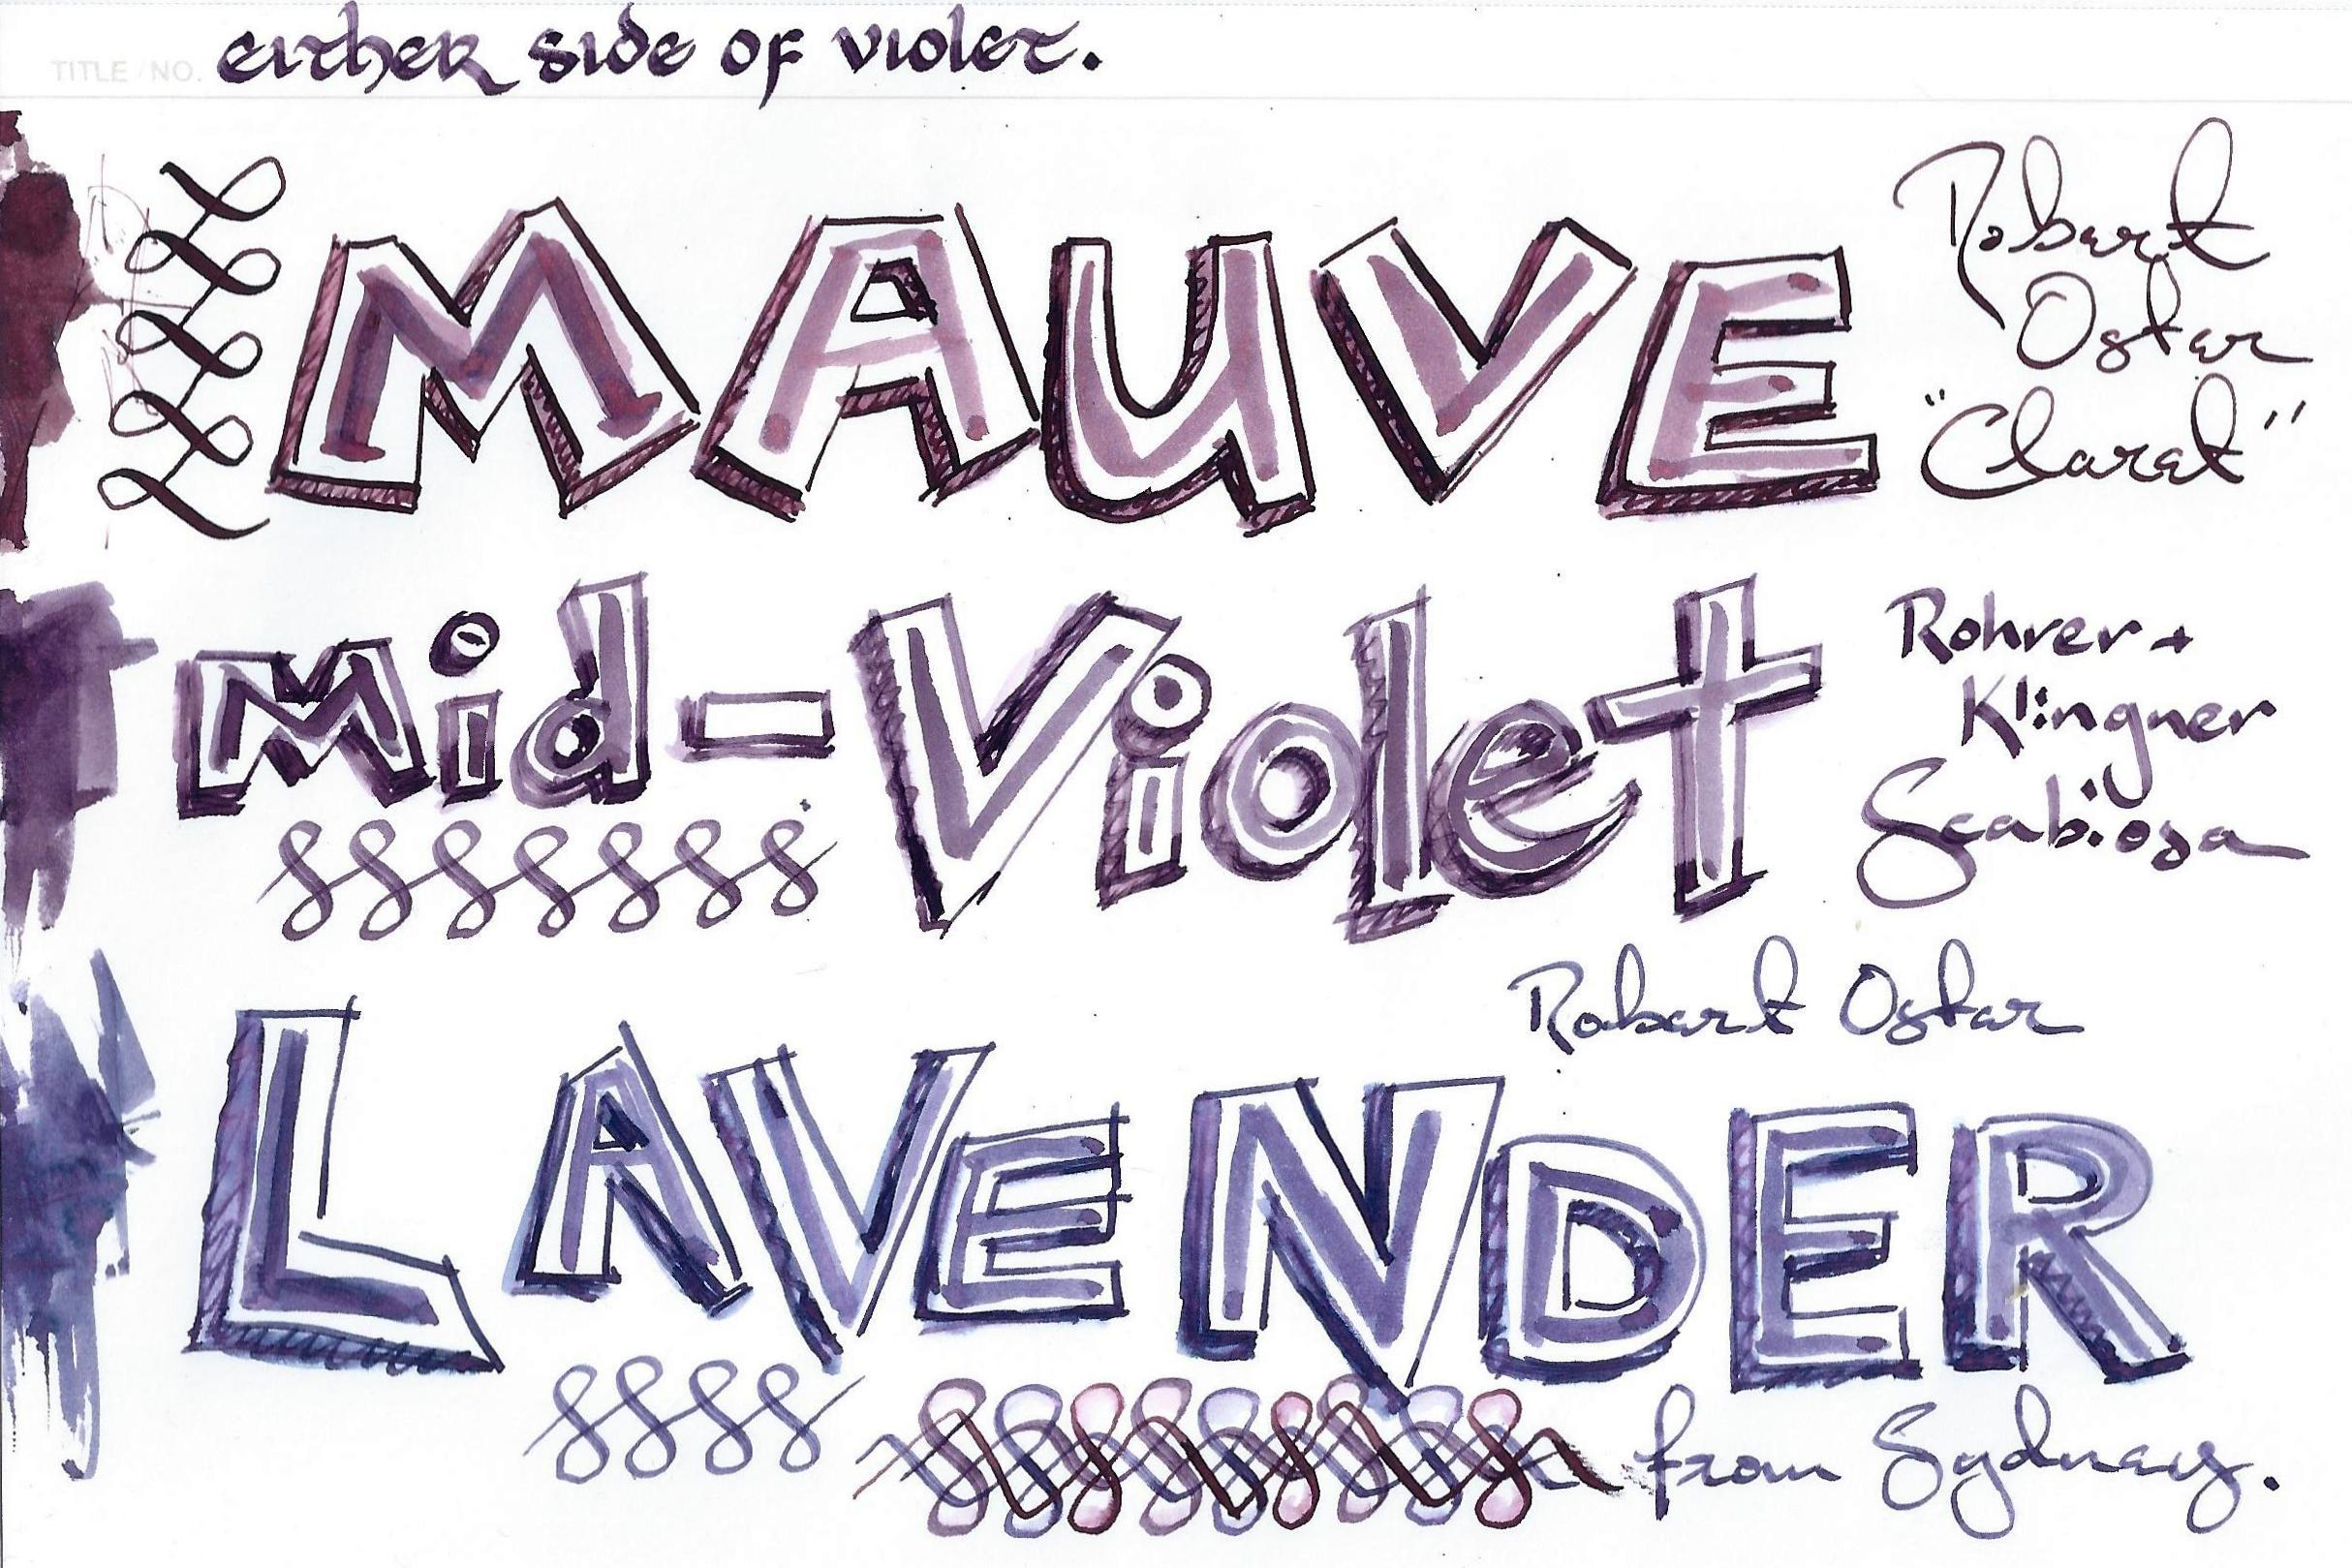 TITLE / NO. either side of violet.
MAUVE
Robert
Oster
"Claret"
Mid-Violet
Rohrer +
Klingner
Scabiosa
Robert Oster
LAVENDER
from Sydney.